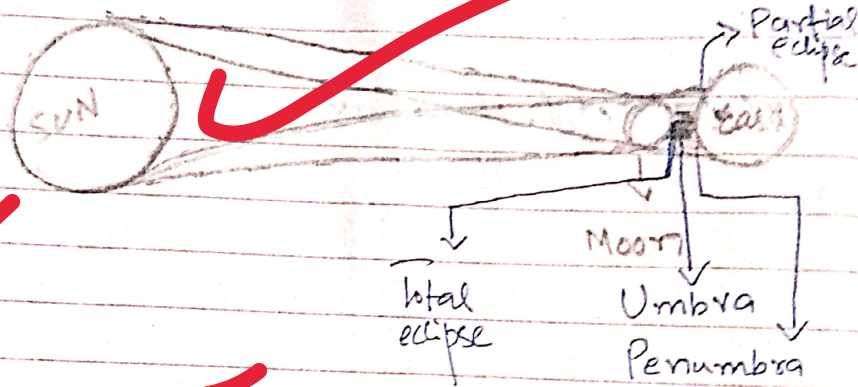 Partial
eclipse
SUN
Earth
Moon
Total
eclipse
Umbra
Penumbra